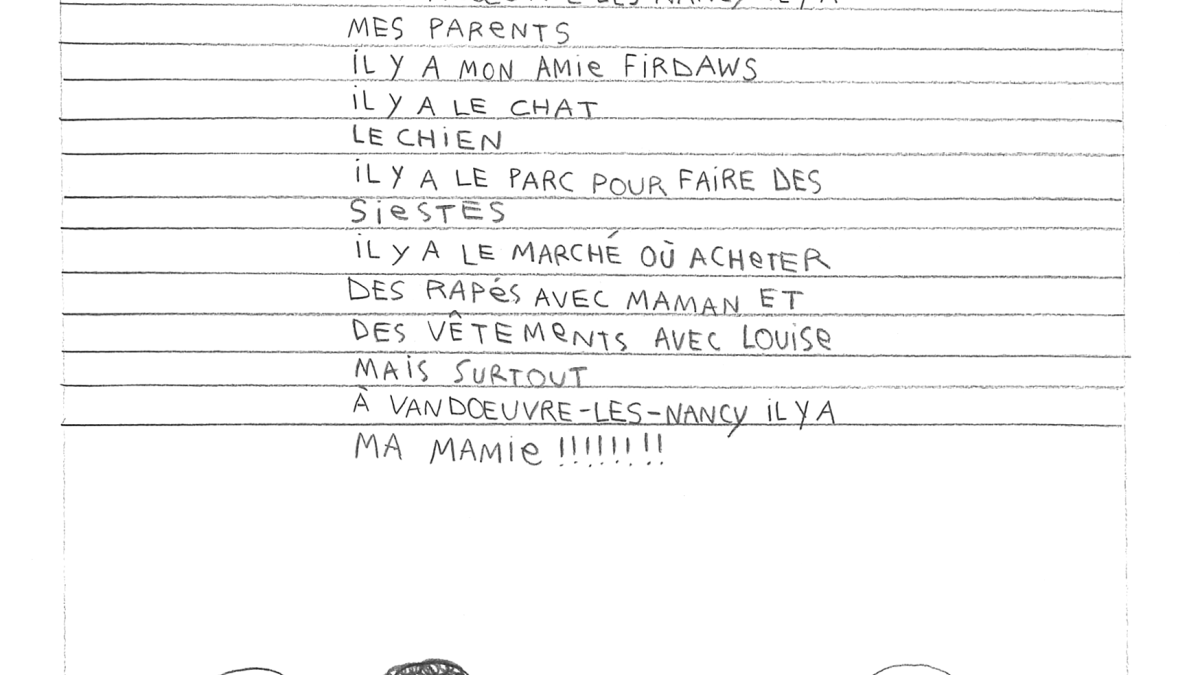 MES PARENTS
IL Y A MON AMIE FIRDAWS
IL Y A LE CHAT
LE CHIEN
IL Y A LE PARC POUR FAIRE DES
SIESTES
IL Y A LE MARCHÉ OÙ ACHETER
DES RAPÉS AVEC MAMAN ET
DES VÊTEMENTS AVEC LOUISE
MAIS SURTOUT
À VANDOEUVRE-LES-NANCY IL Y A
MA MAMIE !!!!!!!!